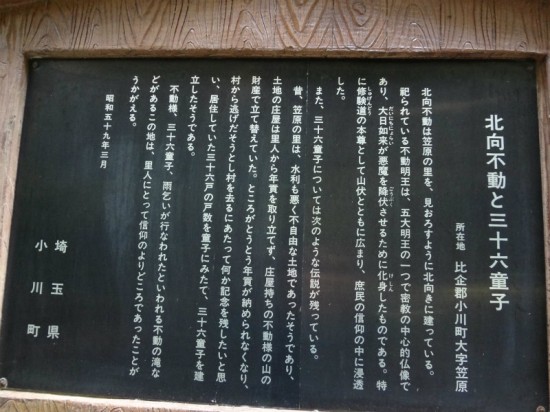 北向不動と三十六童子
所在地　比企郡小川町大字笠原
北向不動は笠原の里を、見おろすように北向きに建っている。
祀られている不動明王は、五大明王の一つで密教の中心的仏像で
あり、大日如来が悪魔を降伏させるために化身したものである。特
に修験道の本尊として山伏とともに広まり、庶民の信仰の中に浸透
した。
また、三十六童子については次のような伝説が残っている。
昔、笠原の里は、水利も悪く不自由な土地であったそうであり、
土地の庄屋は里人から年貢を取り立てず、庄屋持ちの不動様の山の
財産で立て替えていた。ところがとうとう年貢が納められなくなり、
村から逃げだそうとし村を去るにあたって何か記念を残したいと思
い、居住していた三十六戸の戸数を童子にみたて、三十六童子を建
立したそうである。
不動様、三十六童子、雨乞いが行なわれたといわれる不動の滝な
どがあるこの地は、里人にとって信仰のよりどころであったことが
うかがえる。
昭和五十九年三月
埼玉県
小川町